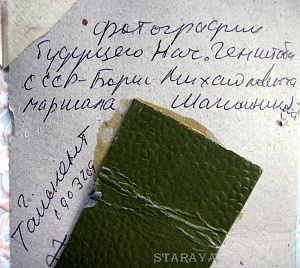 фотографии
будущего Нач. Генштаба
СССР - Бориса Михайловича
маршала Шапошникова
г.
Ташкент
STARAYA